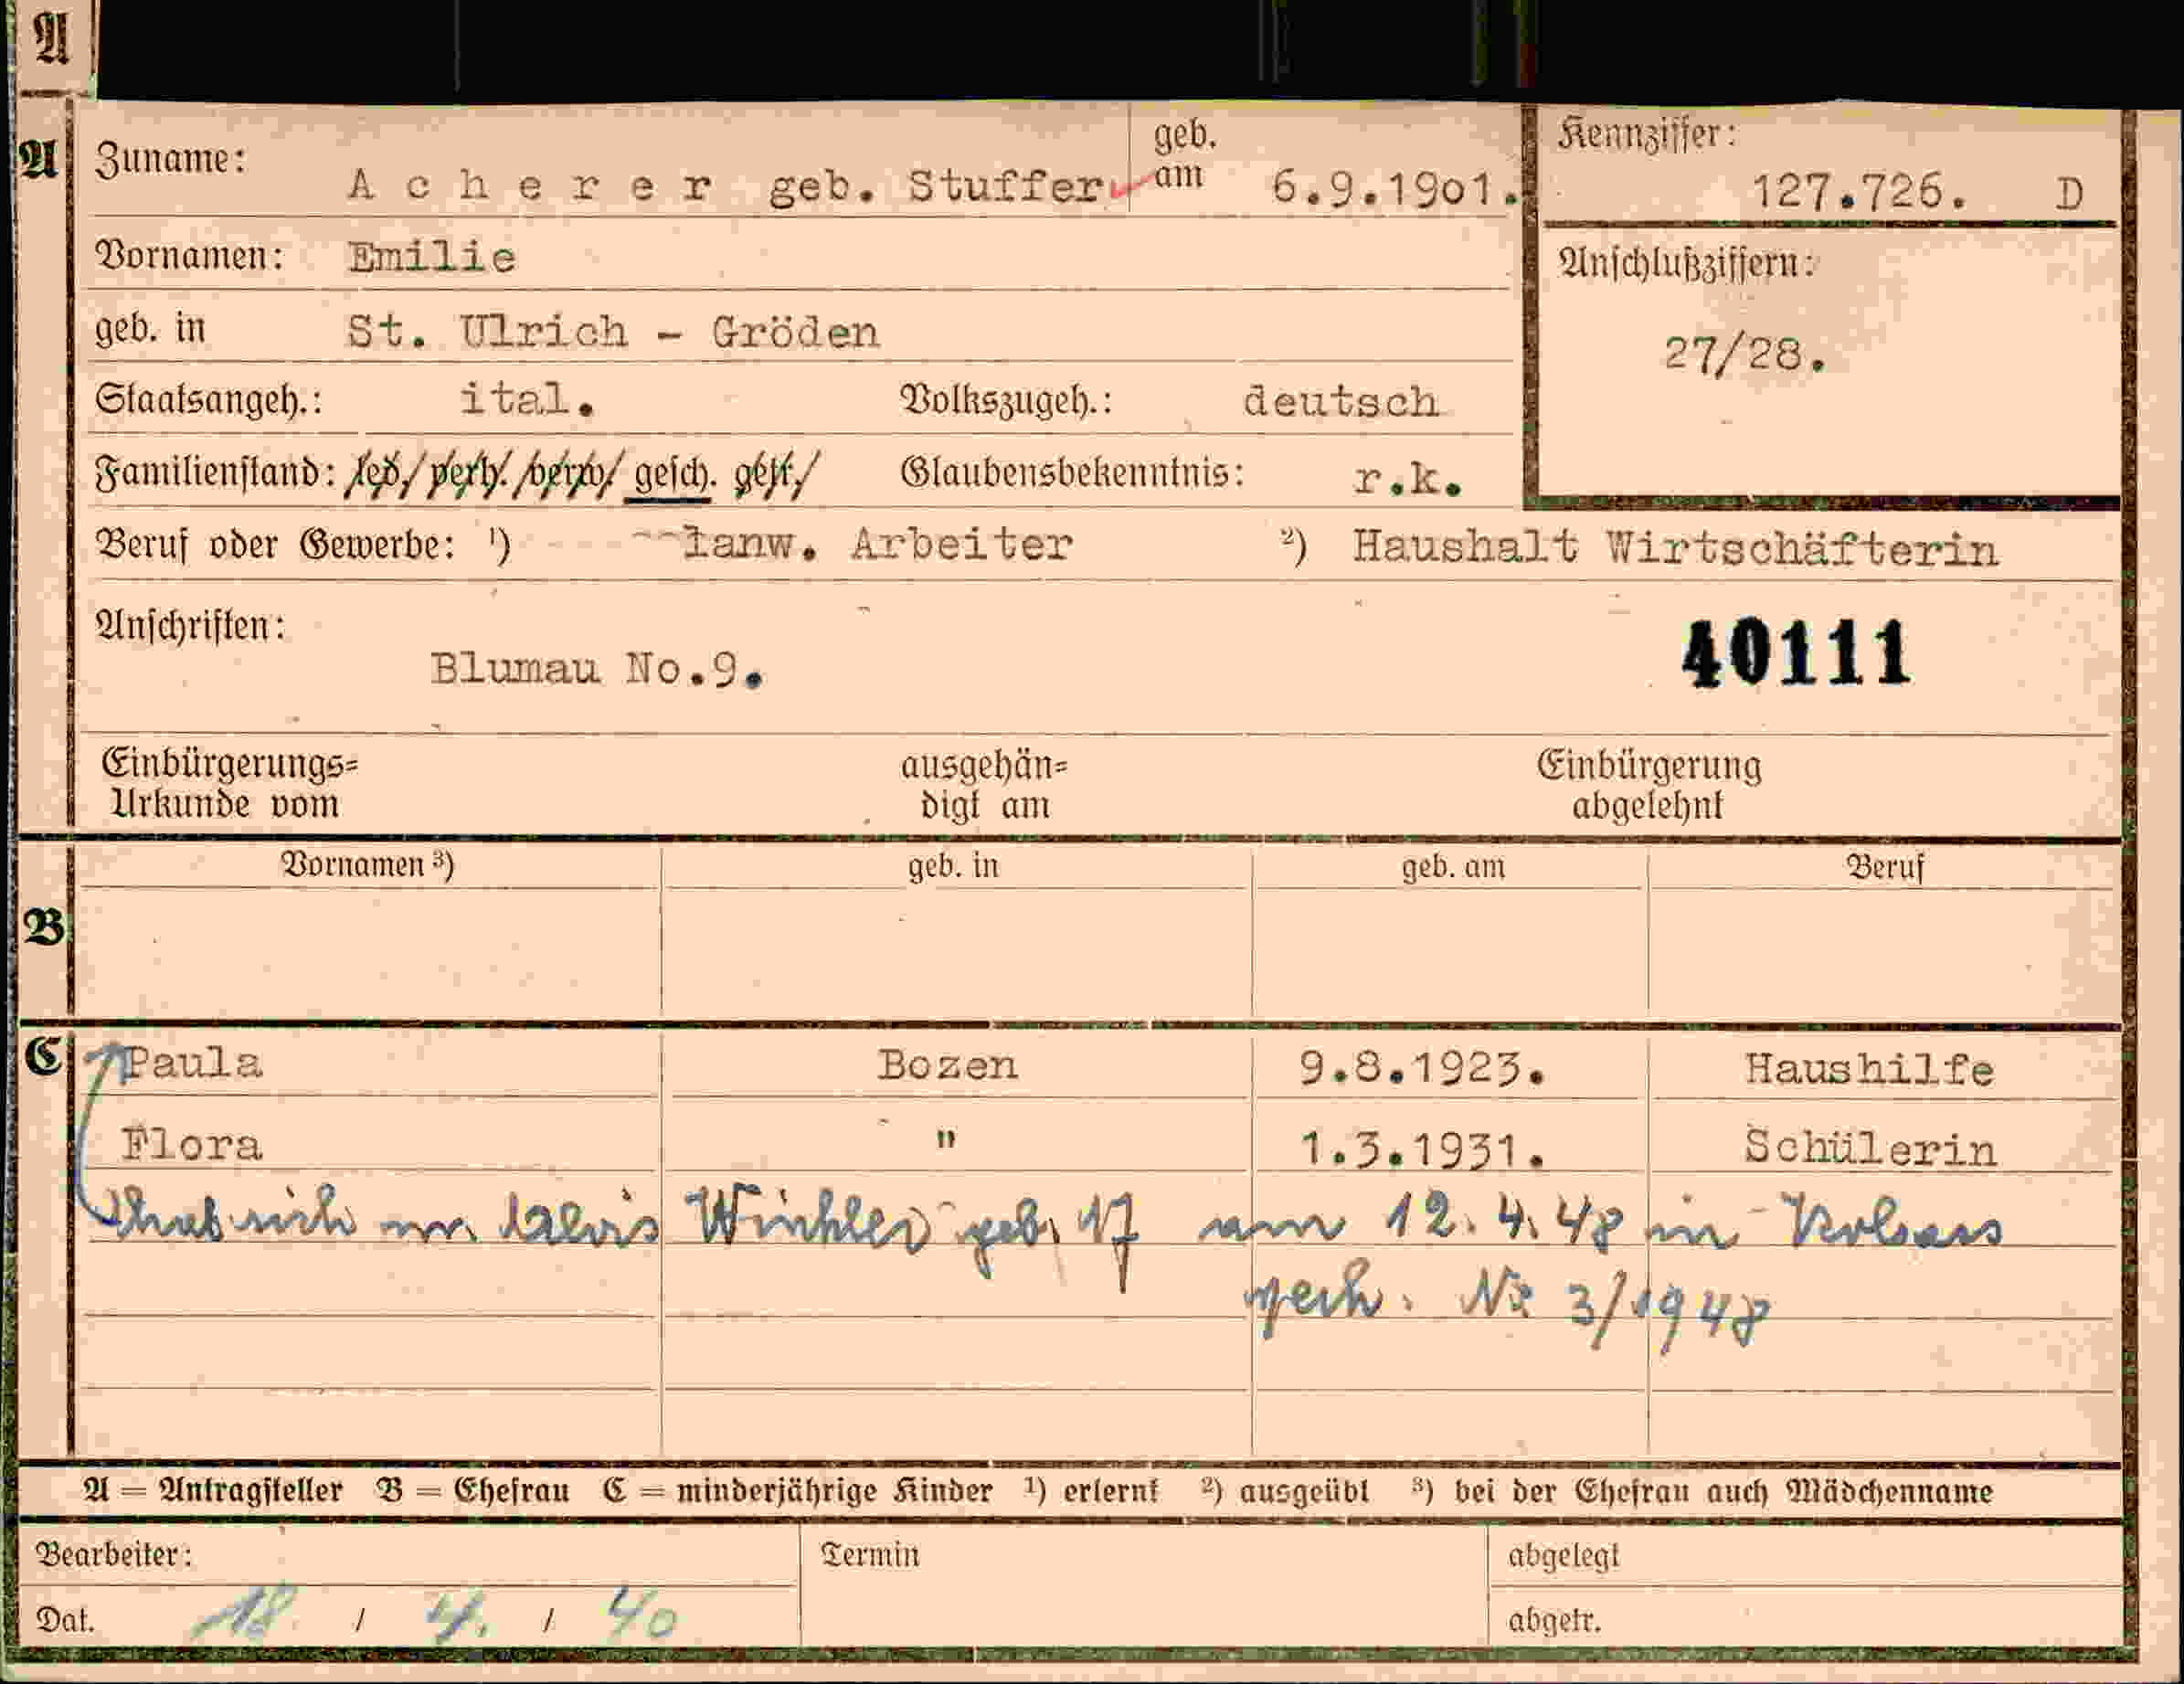 A
A Zuname: A c h e r e r geb. Stuffer geb. am 6.9.19o1. Kennziffer: 127.726. D
Vornamen: Emilie Anschlußziffern:
geb. in St. Ulrich - Gröden 27/28.
Staatsangeh.: ital. Volkszugeh.: deutsch
Familienstand: led./ verh. /verw/ gesch. getr./ Glaubensbekenntnis: r.k.
Beruf oder Gewerbe: ¹) lanw. Arbeiter ²) Haushalt Wirtschäfterin
Anschriften: 40111
Blumau No.9.
Einbürgerungs= ausgehän= Einbürgerung
Urkunde vom digt am abgelehnt
Vornamen ³) geb. in geb. am Beruf
B
C Paula Bozen 9.8.1923. Haushilfe
Flora " 1.3.1931. Schülerin
hat sich m. Alois Winkler geb. 17 am 12.4.48 in Kolsass
verh. Nr 3/1948
A = Antragsteller B = Ehefrau C = minderjährige Kinder ¹) erlernt ²) ausgeübt ³) bei der Ehefrau auch Mädchenname
Bearbeiter: Termin abgelegt
Dat. 18. / 4. / 40 abgetr.